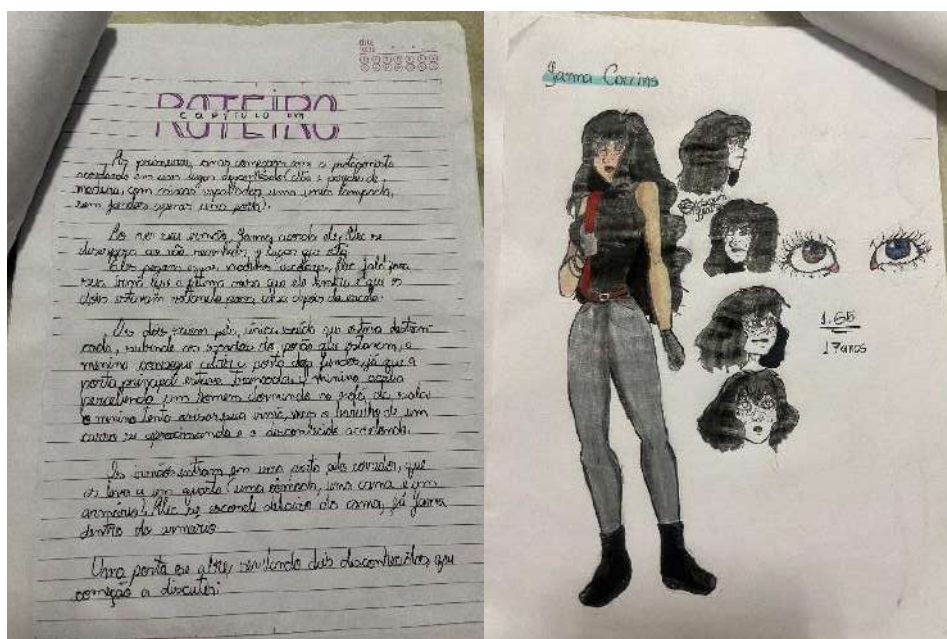 ROTEIRO
CAPÍTULO UM
As primeiras cenas começam com a protagonista
acordando em um lugar desconhecido, chão e paredes de
madeira, com caixas espalhadas, uma única lâmpada,
sem janelas apenas uma porta.
Ao ver seu irmão, Janna acorda Alec se
desespera ao não reconhecer o lugar que está
Eles pegam madeira
seu irmão que a última coisa que ele lembra é que os
dois estavam voltando para casa depois da escola.
Os dois saem pela única saída que estava destran-
cada, subindo as escadas do porão que estavam, a
menina consegue a porta dos fundos, já que a
porta principal estava trancada. O menino acaba
percebendo um homem dormindo no sofá da sala
o menino tenta avisar sua irmã, o barulho de um
carro se aproximando e o desconhecido acordando.
Os irmãos entram em uma porta pelo corredor, que
os leva a um quarto (uma cômoda, uma cama e um
armário). Alec se esconde debaixo da cama, já Janna
dentro do armário
Uma porta se abre, dois desconhecidos que
começão a discutir:
Janna Collins
1.65
17 anos